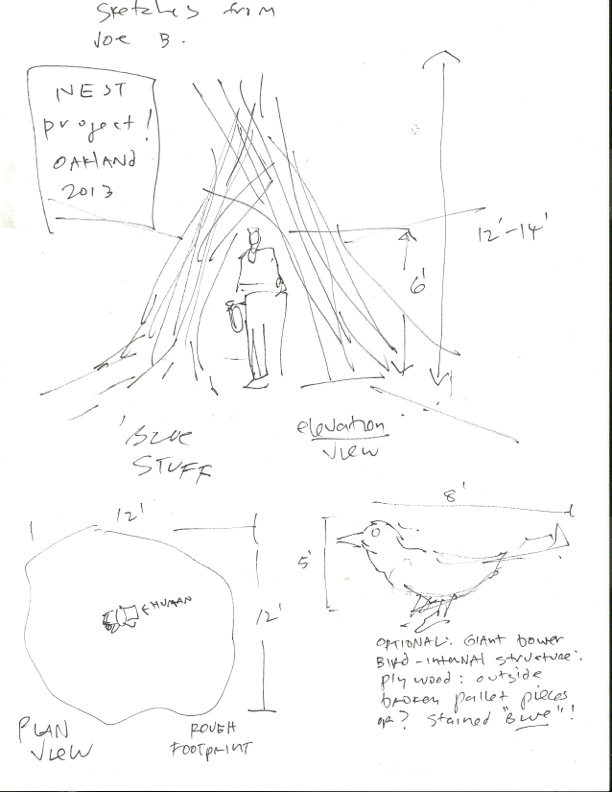 Sketches from
Joe B.
NEST
project!
OAKLAND
2013
12'-14'
6'
'BLUE
STUFF
elevation
VIEW
12'
12'
HUMAN
PLAN
VIEW
ROUGH
FOOTPRINT
8'
5'
OPTIONAL: GIANT bower
BIRD - INTERNAL structure:
plywood: outside
broken pallet pieces
or? Stained "BLUE"!